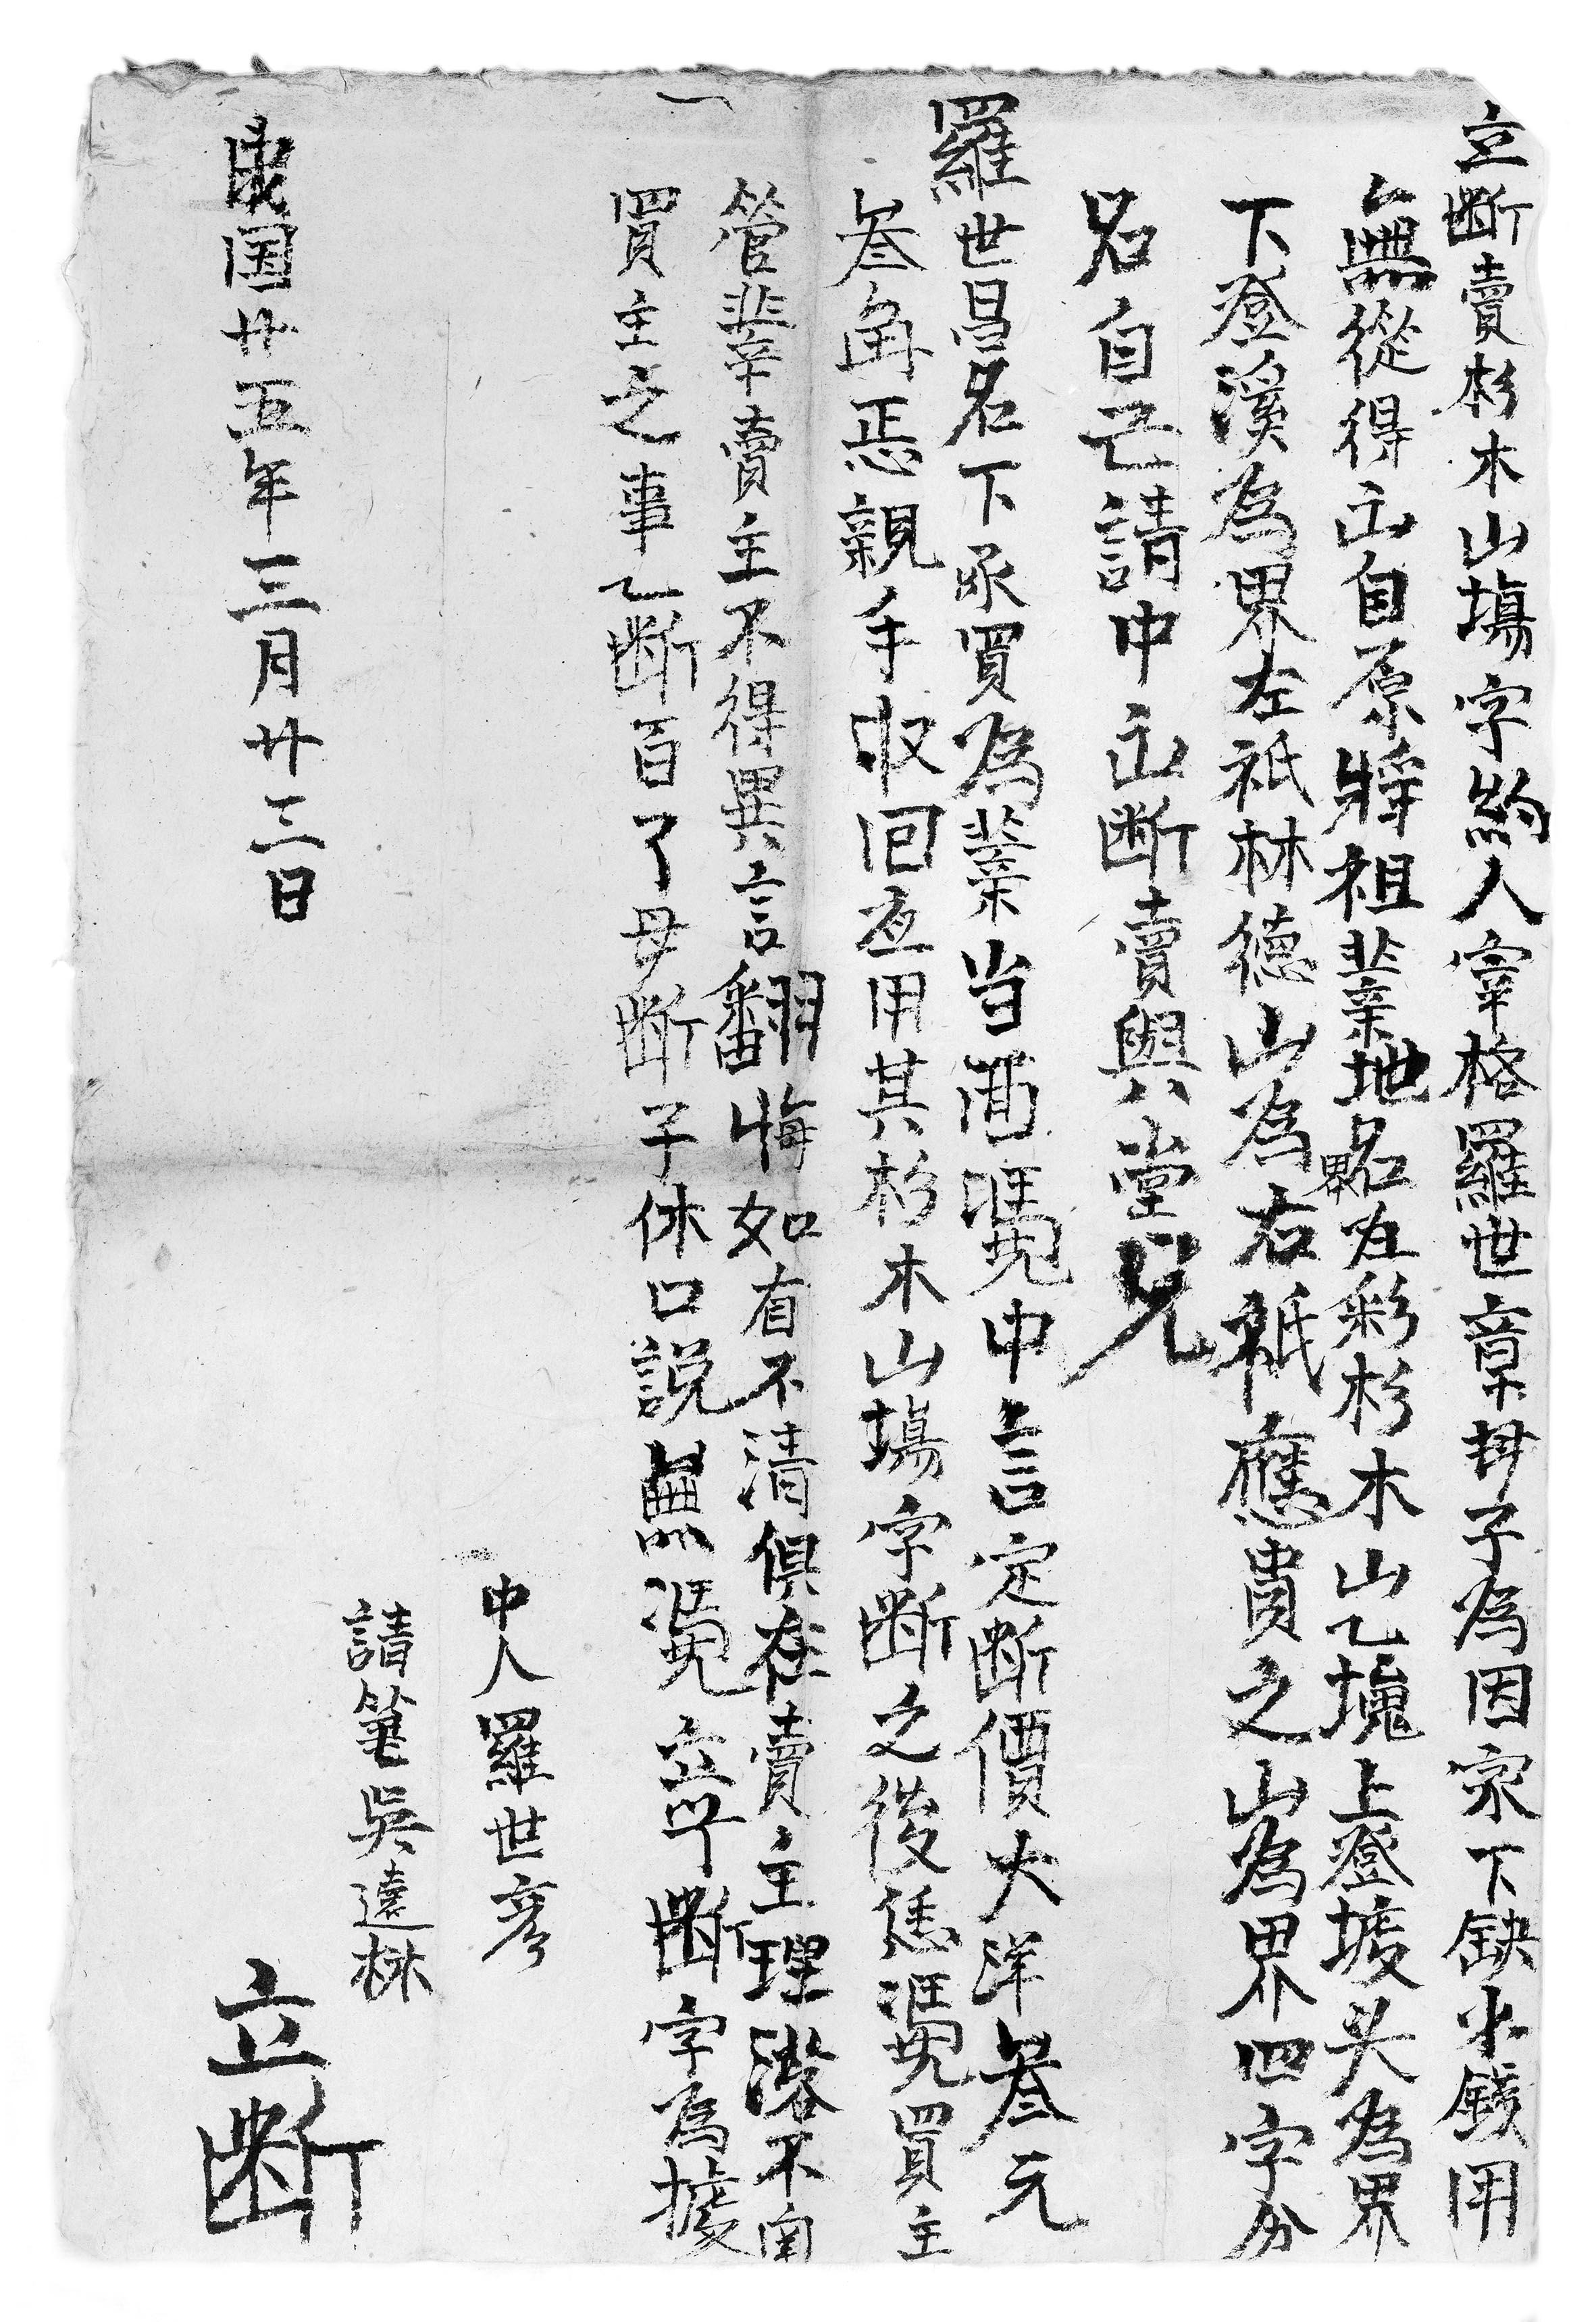 立斷賣杉木山塲字約人宰格羅世章 子為因家下缺少錢用
無從得出自原將祖業地名 彩杉木山乙塊上登坡头為界
下登溪為界左祇林德山為右祇應貴之山為界四字分
名自己請中出断賣與堂兄
羅世昌名下承買為業当面憑中言定断價大洋叁元
叁角正親手收回应用其杉木山塲字斷之後恁憑買主
管業賣主不得異言翻悔如有不清俱在賣主理落不関
買主之事乙斷百了母斷子休口説無憑立斷字為據
中人羅世彦
請筆吳遠林
民国廿五年三月廿三日 立斷